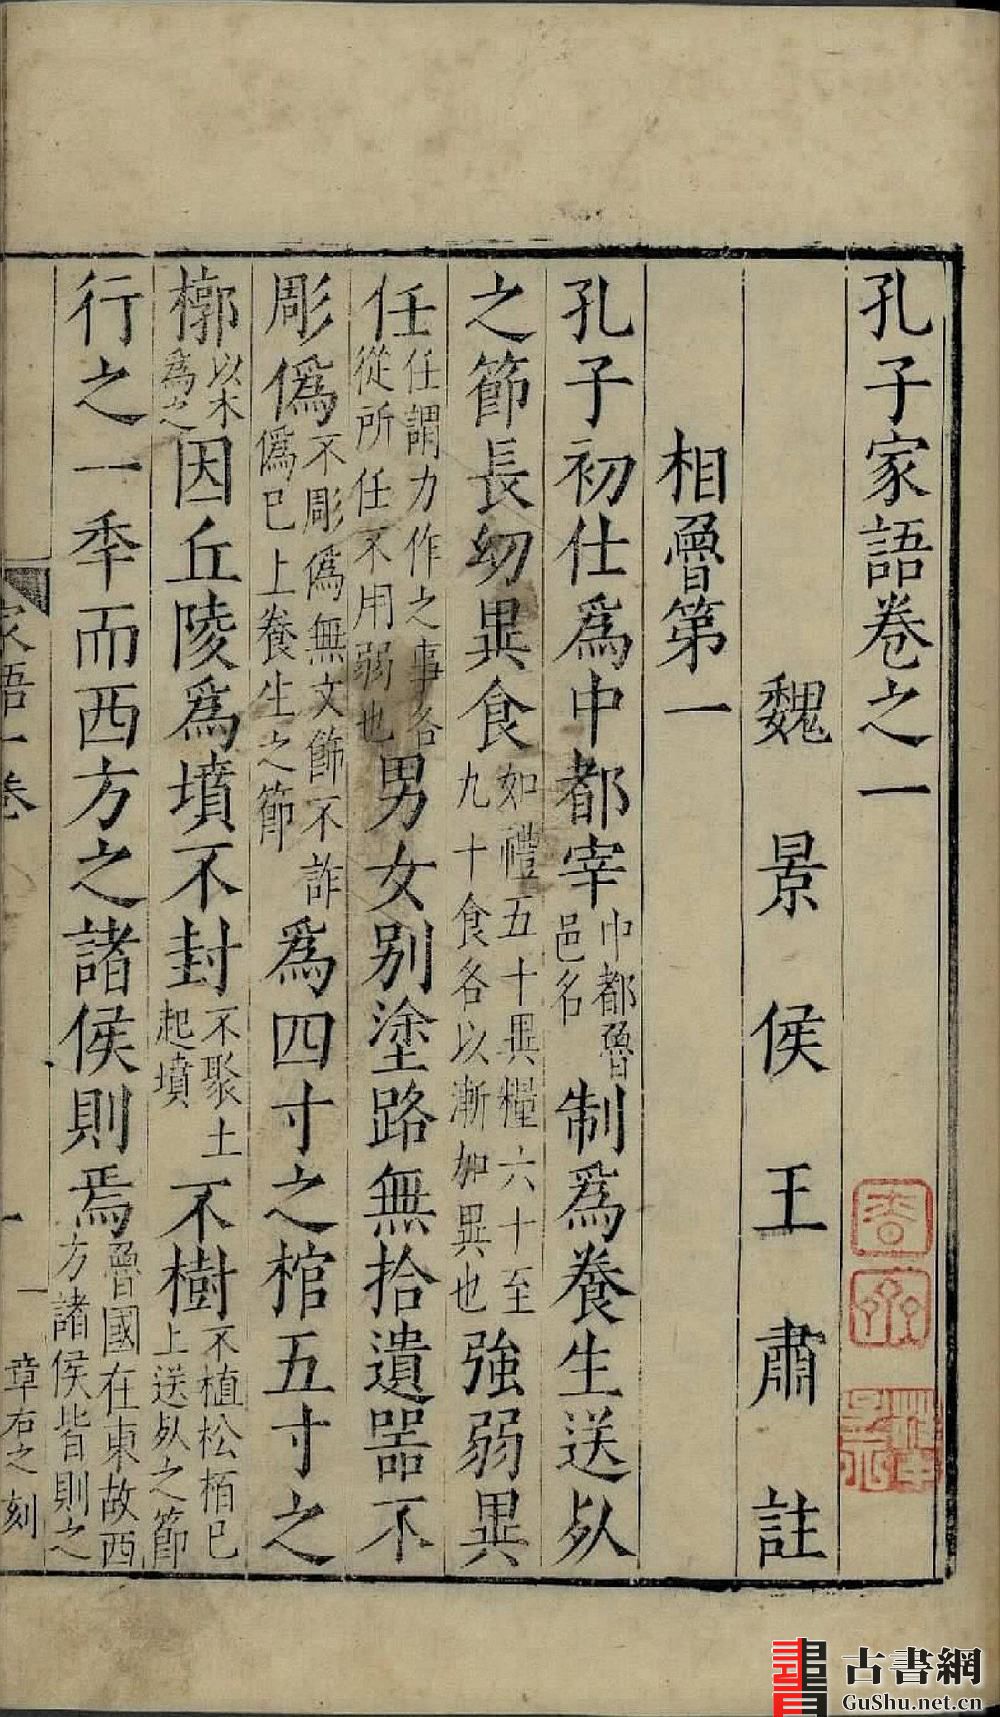 孔子家語卷之一
魏景侯王肅註
相魯第一
孔子初仕爲中都宰中都魯邑名制爲養生送𣦸
之節長幼異食如禮五十異糧六十至九十食各以漸加異也強弱異
任任謂力作之事各從所任不用弱也男女別塗路無拾遺器不
彫僞不彫僞無文飾不詐僞已上養生之節爲四寸之棺五寸之
槨以木爲之因丘陵爲墳不封不聚土起墳不樹不植松栢已上送𣦸之節
行之一秊而西方之諸侯則焉魯國在東故西方諸侯皆則之
家語一卷
一
章右之刻
古書網
GuShu.net.cn